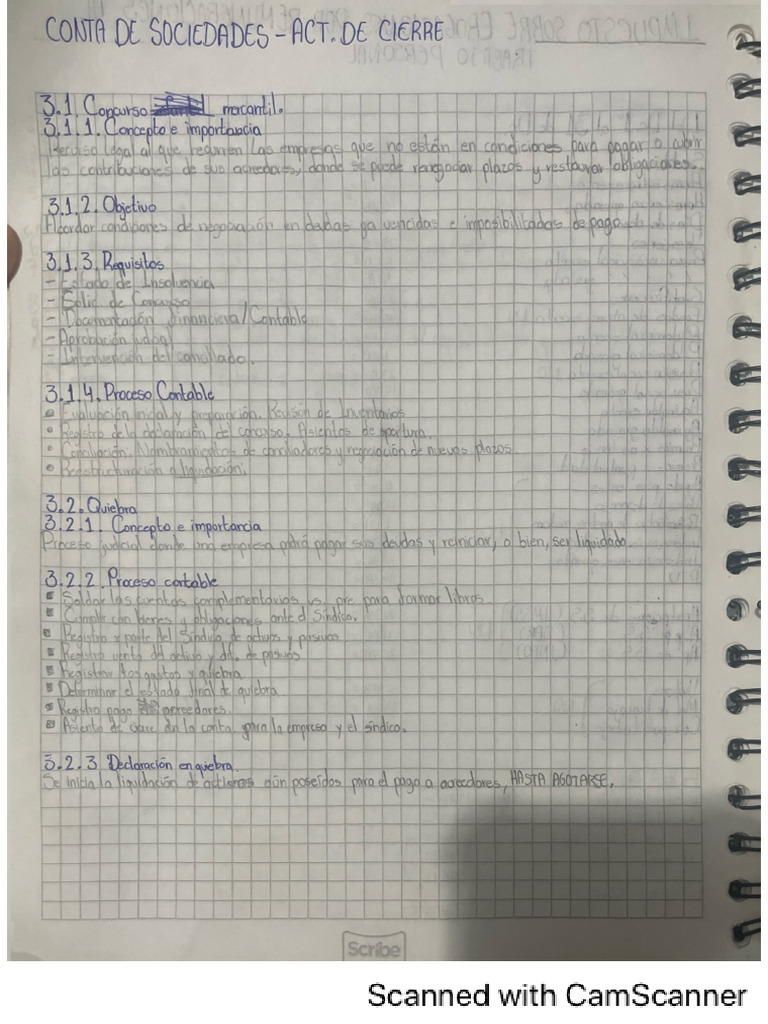 CONTA DE SOCIEDADES - ACT. DE CIERRE
3.1 Concurso mercantil.
3.1.1. Concepto e importancia
Recurso legal al que recurren las empresas que no están en condiciones para pagar o cubrir
las contribuciones de sus acreedores, donde se puede renegociar plazos y restaurar obligaciones.
3.1.2. Objetivo
Acordar condiciones de negociación en deudas ya vencidas e imposibilitadas de pago.
3.1.3. Requisitos
- Estado de Insolvencia
- Solic. de Concurso
- Documentación Financiera/Contable
- Aprobación judicial
- Intervención del conciliador.
3.1.4. Proceso Contable
• Evaluación inicial y preparación. Revisión de Inventarios
• Registro de la declaración del concurso. Asientos de apertura.
• Conciliación. Nombramientos de conciliadores y negociación de nuevos plazos.
• Reestructuración o liquidación.
3.2. Quiebra
3.2.1. Concepto e importancia
Proceso judicial donde una empresa podrá pagar sus deudas y reiniciar, o bien, ser liquidado.
3.2.2. Proceso contable
▪ Saldar las cuentas complementarias vs. para formar libros
▪ Cumplir con bienes y obligaciones ante el Síndico.
▪ Registro x parte del Síndico de activos y pasivos
▪ Registro venta del activo y de pasivos
▪ Registrar los gastos x quiebra
▪ Determinar el estado final de quiebra
▪ Registro pago acreedores.
▪ Asiento de cierre en la conta para la empresa y el síndico.
3.2.3 Declaración en quiebra.
Se inicia la liquidación de aún poseídos para el pago a acreedores, HASTA AGOTARSE.
Scribe
Scanned with CamScanner